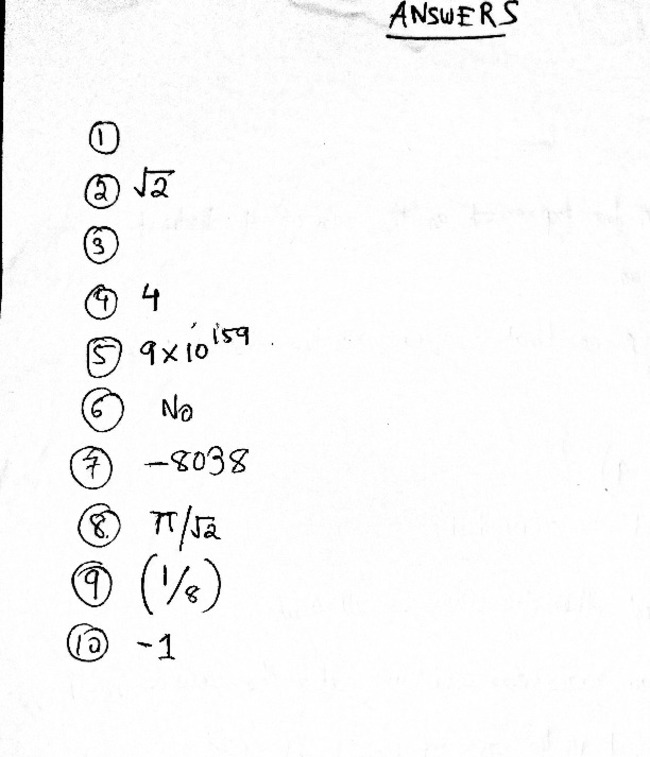 ANSWERS
①
② √2
③
④ 4
⑤ 9×10¹⁵⁹
⑥ No
⑦ −8038
⑧ π/√2
⑨ (1/8)
⑩ -1